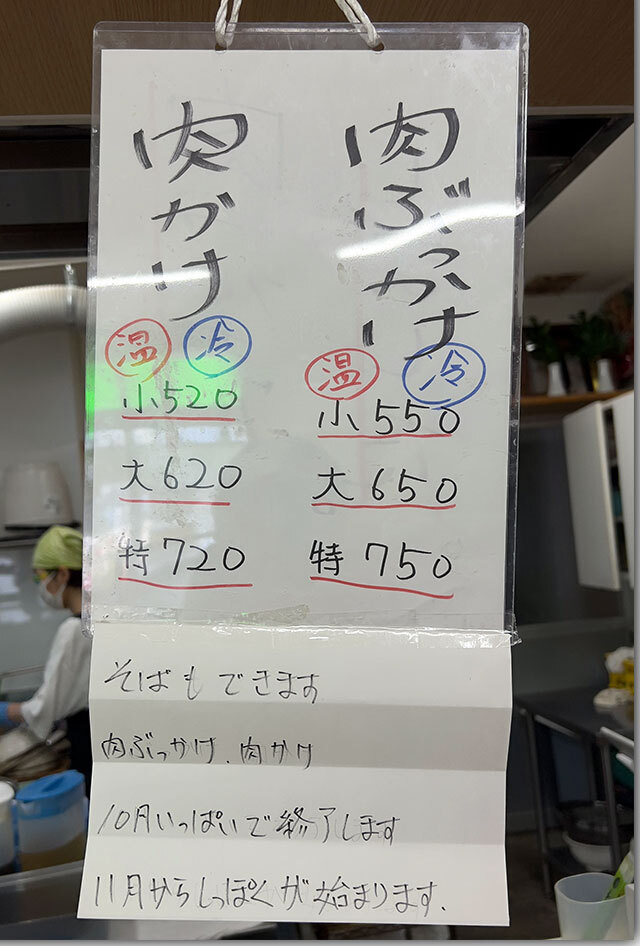 肉ぶっかけ
温 冷
小550
大650
特750
肉がけ
温 冷
小520
大620
特720
そばもできます
肉ぶっかけ、肉かけ
10月いっぱいで終了します
11月からしっぽくが始まります.